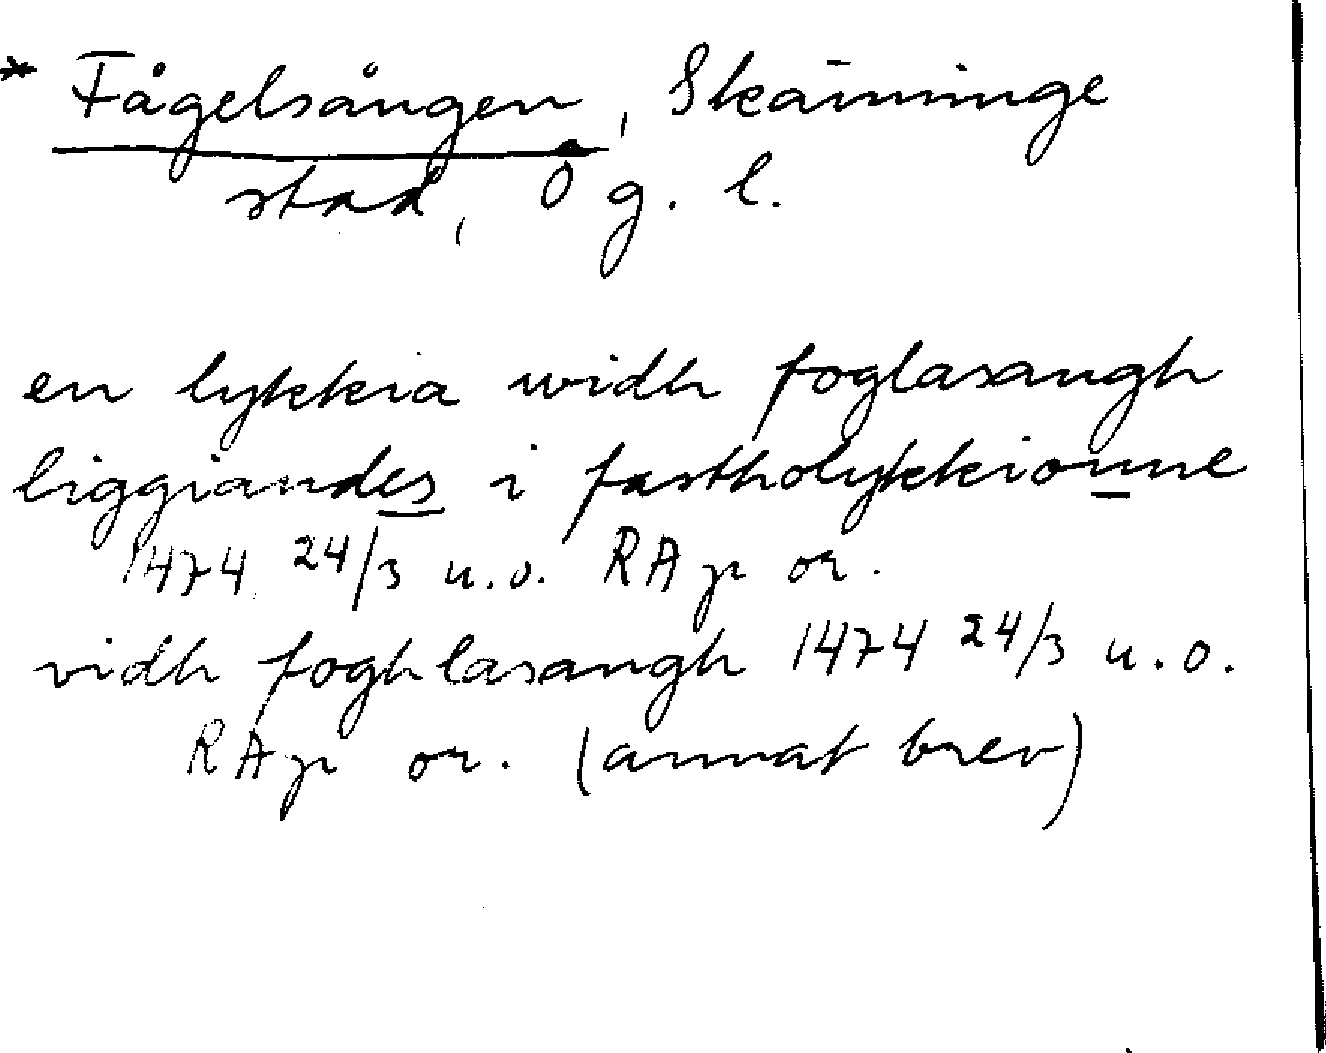 * Fågelsången, Skänninge
stad, Ög. l.
en lykkia widh foglasangh
liggiandes i fastholykkionne
1474 24/3 u.o. RAp or.
vidh foghlasangh 1474 24/3 u.o.
RAp or. (annat brev)